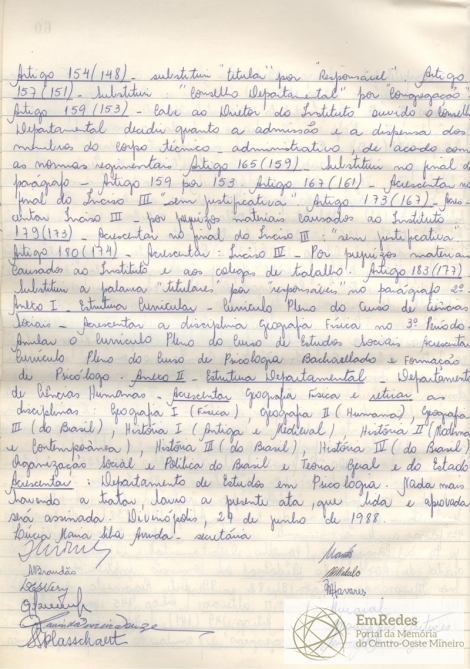 Artigo 154(148) - substituir "titula" por "Responsável" Artigo
157(151) - Substituir "Conselho Departamental" por "Congregação"
Artigo 159(153) - Cabe ao Diretor do Instituto ouvido o Conselho
Departamental decidir quanto a admissão e a dispensa dos
membros do corpo técnico-administrativo, de acordo com
as normas regimentais. Artigo 165(159) - Substituir no final do
parágrafo - Artigo 159 por 153 Artigo 167(161) - Acrescentar no
final do Inciso III "sem justificativa" Artigo 173(167) - Acres-
centar Inciso III - por prejuízos materiais causados ao Instituto
179(173) - Acrescentar no final do Inciso III: "sem justificativa".
Artigo 180(174) - Acrescentar: Inciso IV - Por prejuízos materiais
causados ao Instituto e aos colegas de trabalho. Artigo 183(177)
Substituir a palavra "titulares" por "responsáveis" no parágrafo 2º.
Anexo I - Estrutura Curricular - Currículo Pleno do Curso de Ciências
Sociais - Acrescentar a disciplina Geografia Física no 3º Período.
Anular o Currículo Pleno do Curso de Estudos Sociais Acrescentar
Currículo Pleno do Curso de Psicologia: Bacharelado e Formação
de Psicólogo. Anexo II - Estrutura Departamental - Departamento
de Ciências Humanas - Acrescentar Geografia Física e retirar as
disciplinas: Geografia I (Física), Geografia II (Humana), Geografia
III (do Brasil), História I (Antiga e Medieval), História II (Moderna
e Contemporânea), História III (do Brasil), História IV (do Brasil)
Organização Social e Política do Brasil e Teoria Geral e do Estado
Acrescentar: Departamento de Estudos em Psicologia. Nada mais
havendo a tratar, lavro a presente ata, que lida e aprovada
será assinada. Divinópolis, 29 de junho de 1988.
Lúcia Maria Silva Arruda - secretária
MBrandão
Tavares
Plasschaert
EmRedes
Portal da Memória
do Centro-Oeste Mineiro